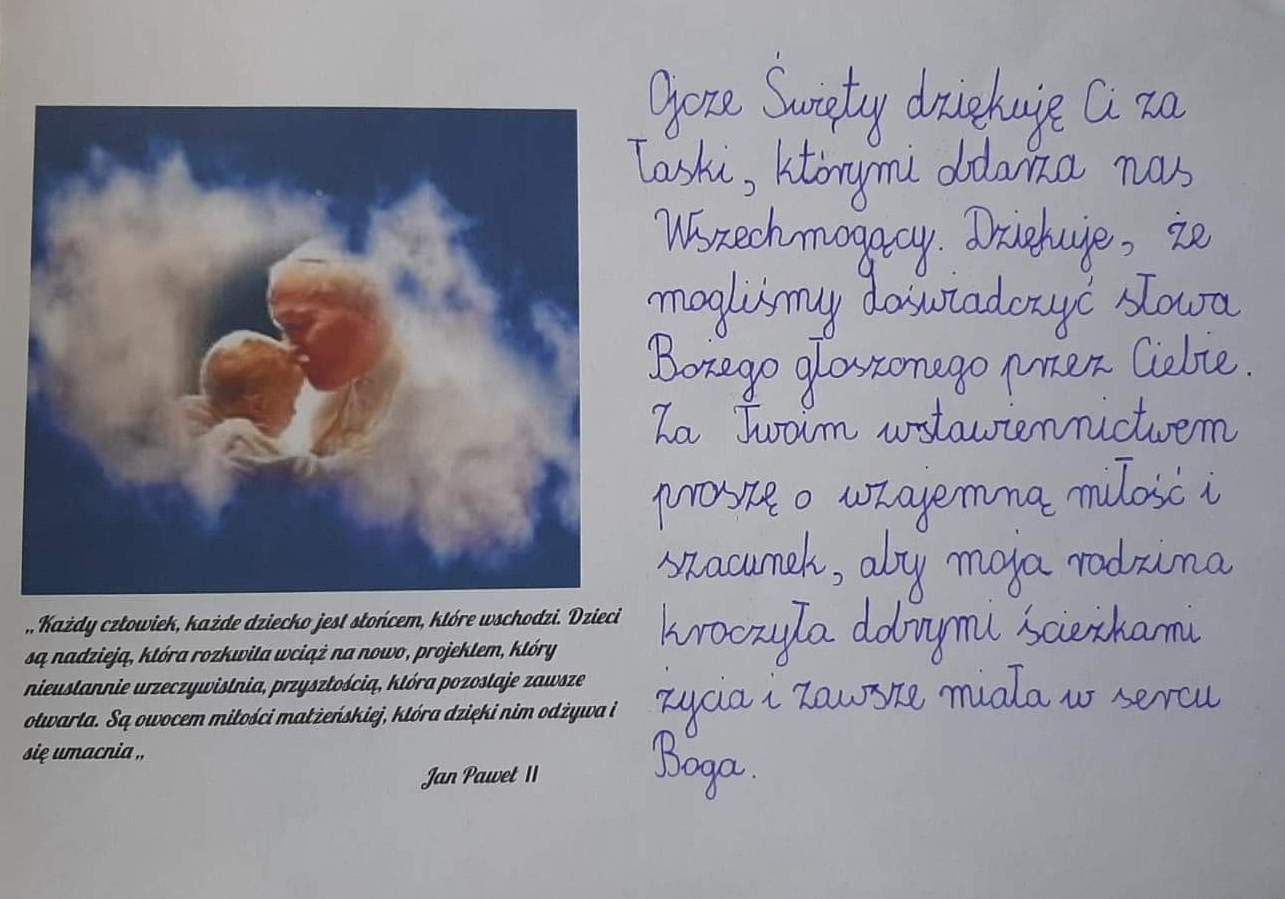 „Każdy człowiek, każde dziecko jest słońcem, które wschodzi. Dzieci
są nadzieją, która rozkwita wciąż na nowo, projektem, który
nieustannie urzeczywistnia, przyszłością, która pozostaje zawsze
otwarta. Są owocem miłości małżeńskiej, która dzięki nim odżywa i
się umacnia„
Jan Paweł II
Ojcze Święty dziękuję Ci za
łaski, którymi obdarza nas
Wszechmogący. Dziękuje, że
mogliśmy doświadczyć słowa
Bożego głoszonego przez Ciebie.
Za Twoim wstawiennictwem
proszę o wzajemną miłość i
szacunek, aby moja rodzina
kroczyła dobrymi ścieżkami
życia i zawsze miała w sercu
Boga.